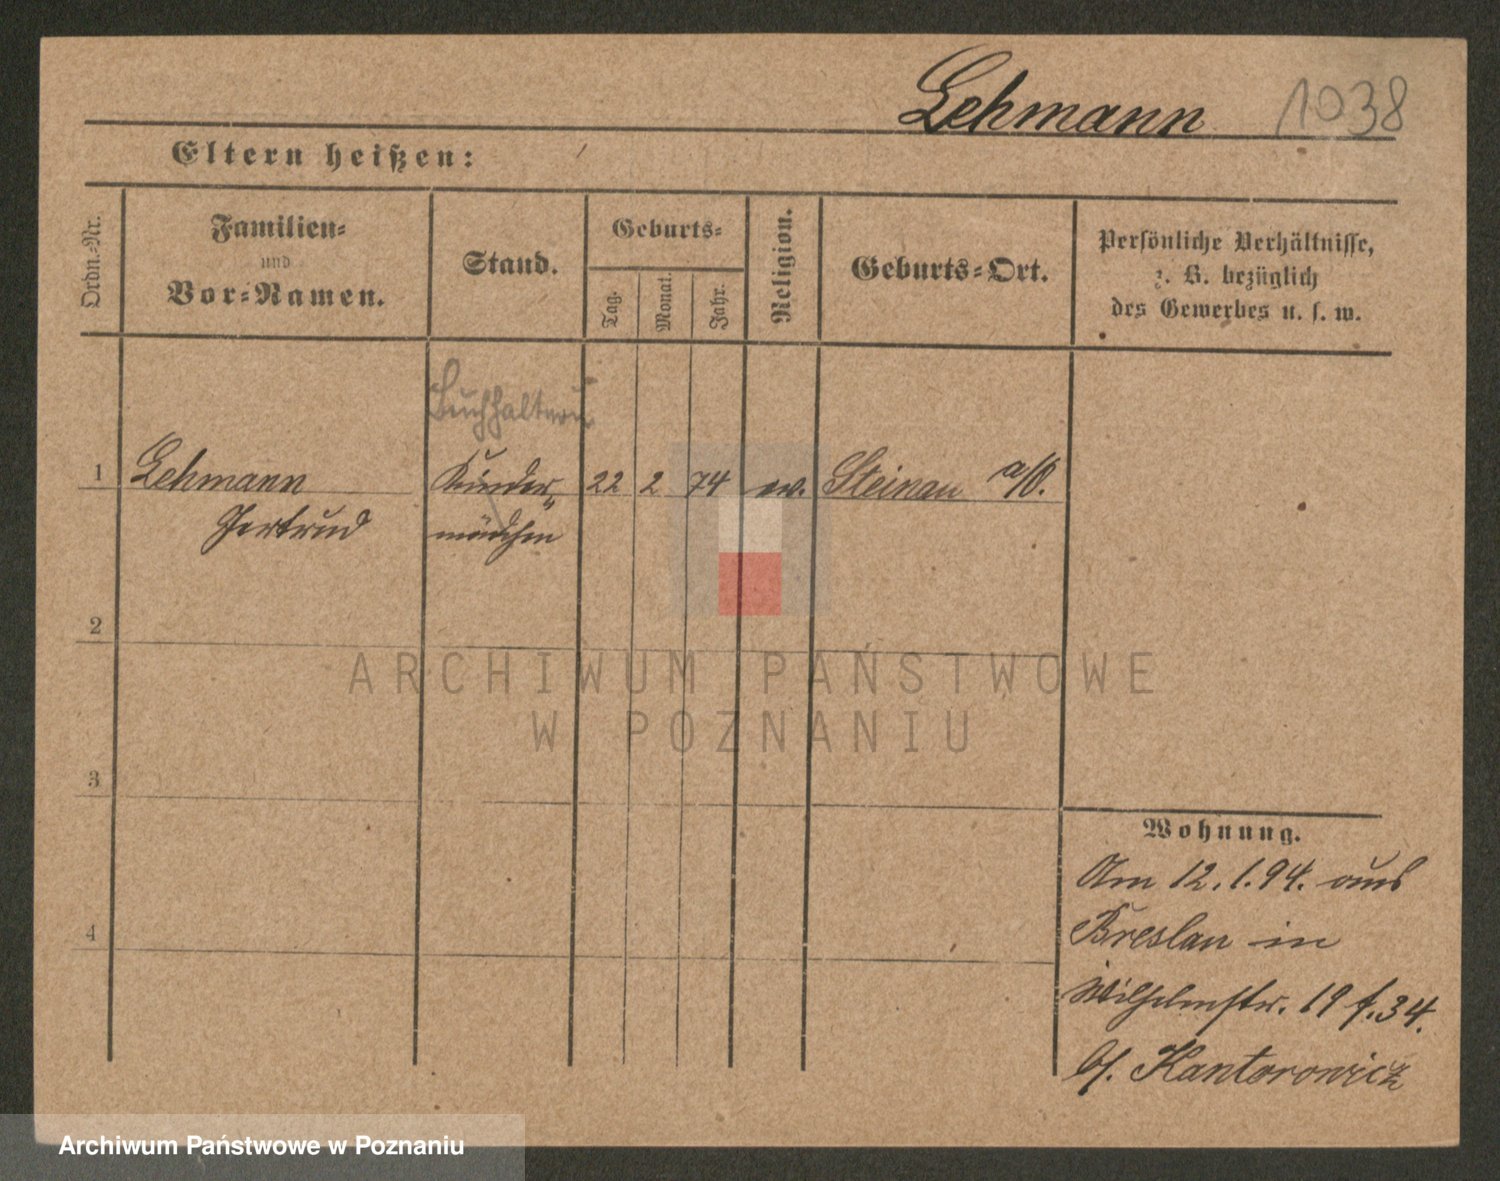 Lehmann 1038
Eltern heißen:
Ordn.-Nr.
Familien-
und
Vor-Namen.
Stand.
Geburts-
Tag.
Monat.
Jahr.
Religion.
Geburts-Ort.
Persönliche Verhältnisse,
z. B. bezüglich
des Gewerbes u. s. w.
Buchhalterin
1 Lehmann Kinder- 22 2 74 ev. Steinau a/O.
Gertrud mädchen
2
3
4
Wohnung.
Am 12.1.94. aus
Breslau in
Wilhelmstr. 19 f. 34.
b/. Kantorowicz
ARCHIWUM PAŃSTWOWE
W POZNANIU
Archiwum Państwowe w Poznaniu